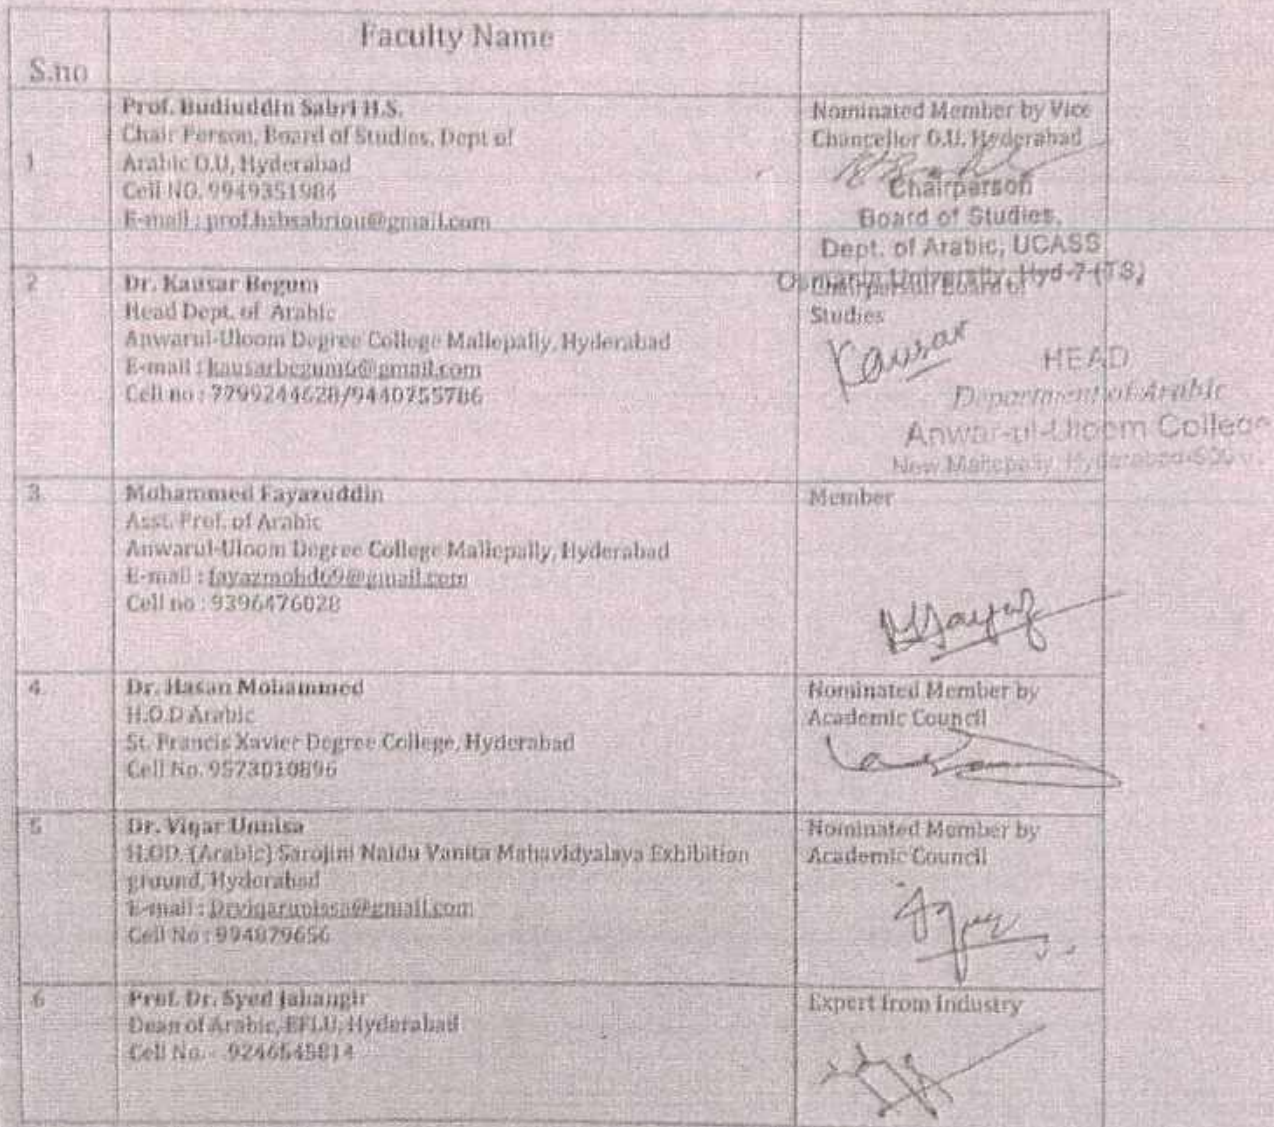 Faculty Name
S.no
Prof. Budiuddin Sabri H.S.
Chair Person, Board of Studies, Dept of
1 Arabic O.U, Hyderabad
Cell NO. 9949351984
E-mail : prof.hsbsabriou@gmail.com
Nominated Member by Vice
Chancellor O.U. Hyderabad
Chairperson
Board of Studies,
Dept. of Arabic, UCASS
Osmania University, Hyd-7 (TS)
2 Dr. Kausar Begum
Head Dept. of Arabic
Anwarul-Uloom Degree College Mallepally, Hyderabad
E-mail : kausarbegum6@gmail.com
Cell no : 7799244628/9440755786
Chairperson Board of
Studies
Kausar
HEAD
Department of Arabic
Anwar-ul-Uloom College
New Mallepally, Hyderabad
3. Mohammed Fayazuddin
Asst. Prof. of Arabic
Anwarul-Uloom Degree College Mallepally, Hyderabad
E-mail : fayazmohd69@gmail.com
Cell no : 9396476028
Member
4. Dr. Hasan Mohammed
H.O.D Arabic
St. Francis Xavier Degree College, Hyderabad
Cell No. 9573010896
Nominated Member by
Academic Council
5 Dr. Viqar Unnisa
H.OD. (Arabic) Sarojini Naidu Vanita Mahavidyalaya Exhibition
ground, Hyderabad
E-mail : Drviqarunissa@gmail.com
Cell No : 994879656
Nominated Member by
Academic Council
6 Prof. Dr. Syed Jahangir
Dean of Arabic, EFLU, Hyderabad
Cell No. - 9246545814
Expert from Industry